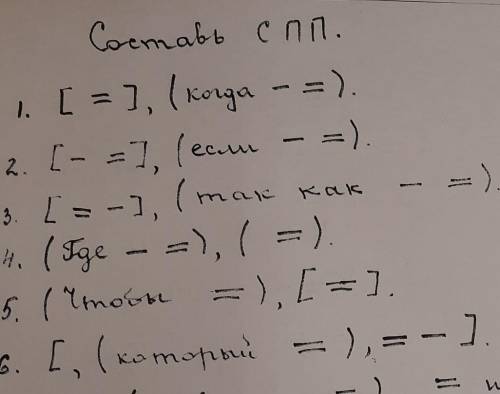 Составь СПП.
1. [ = ], (когда – =).
2. [– =], (если – =).
3. [= –], (так как – =).
4. (Где – =), ( =).
5. (Чтобы =), [=].
6. [, (который =), = –].